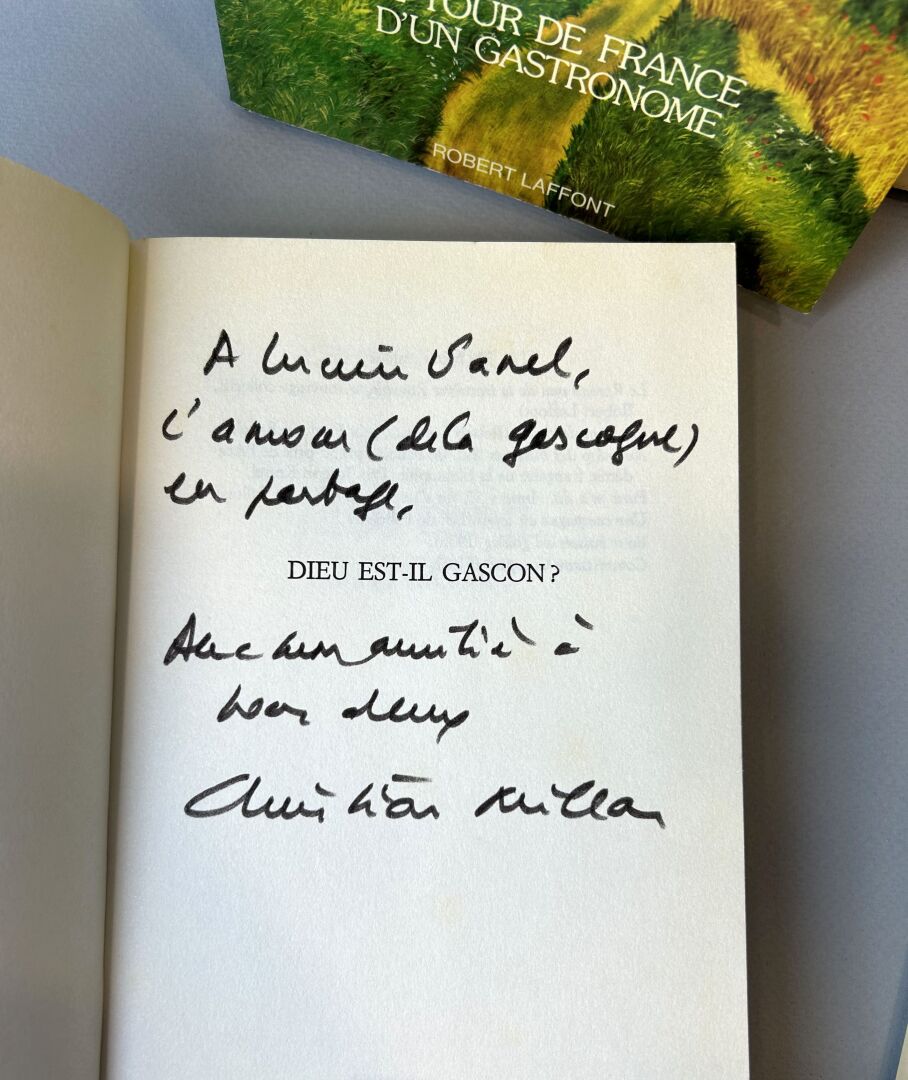 TOUR DE FRANCE
D'UN GASTRONOME
ROBERT LAFFONT
A Lucien Vanel,
l'amour (de la gascogne)
en partage,
DIEU EST-IL GASCON ?
Avec mon amitié à
vous deux
Christian Millau